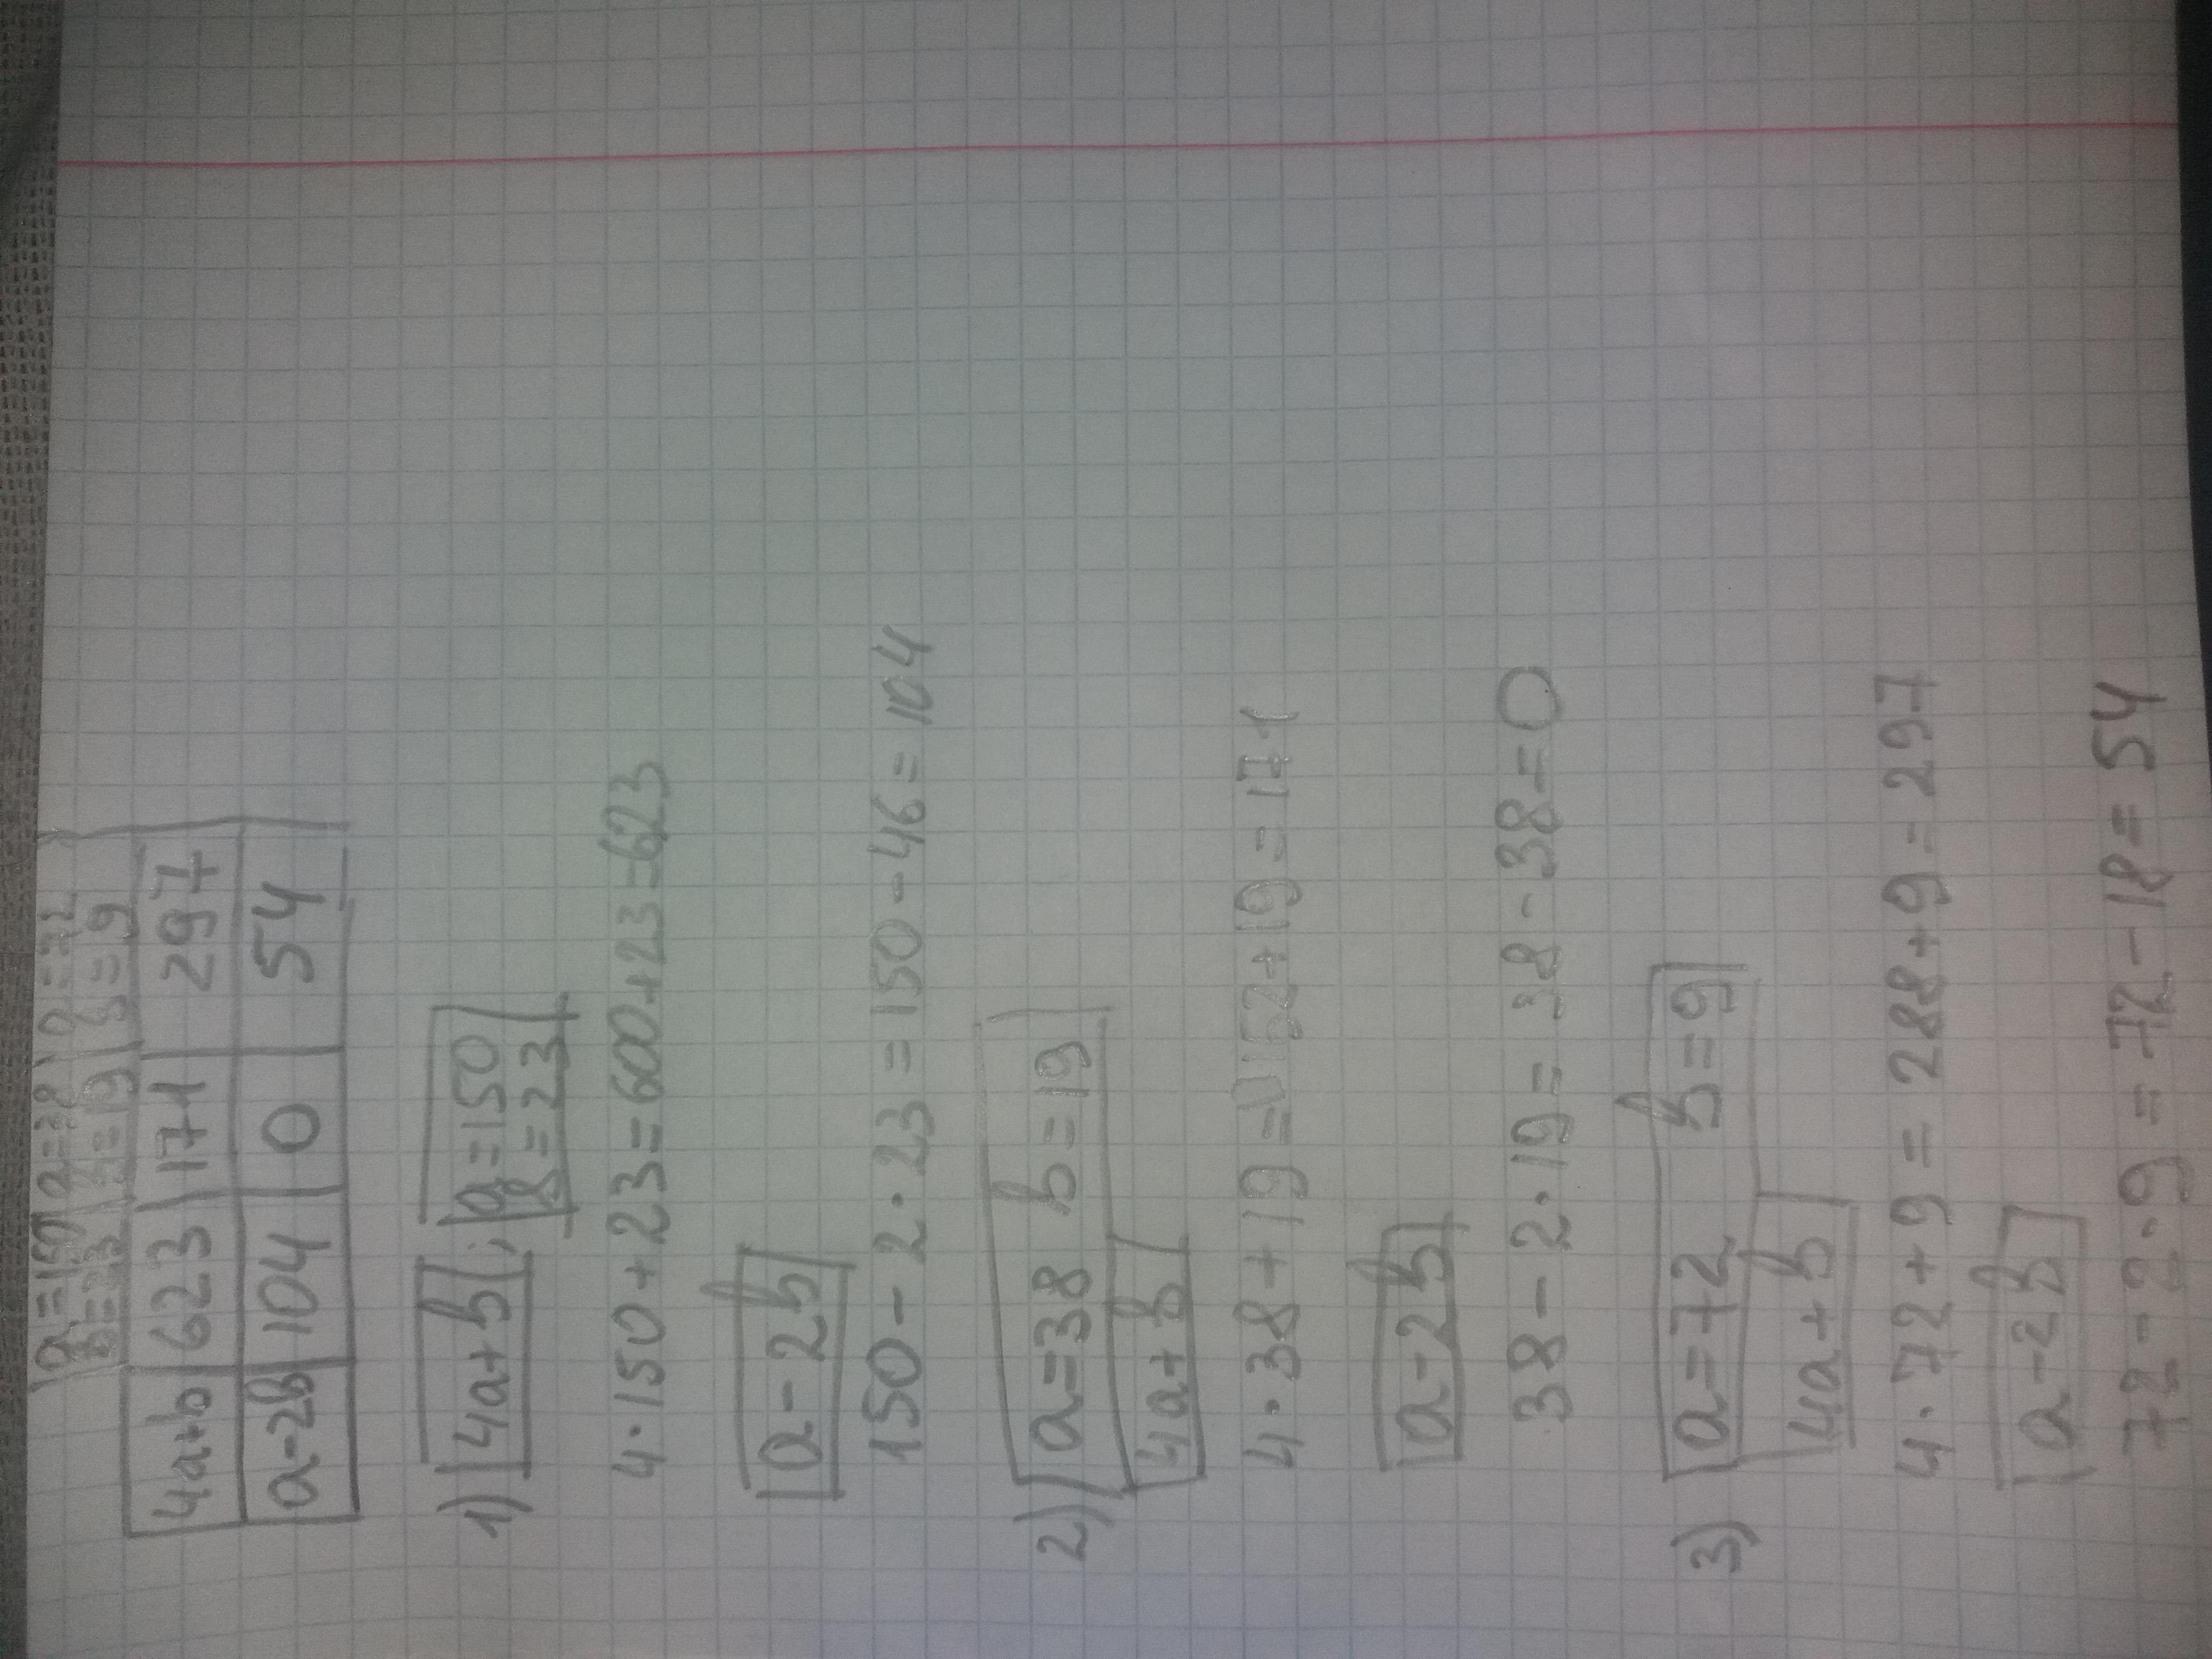 a=150 a=38 a=72
b=23 b=19 b=9
4a+b 623 171 297
a-2b 104 0 54
1) 4a+b; a=150
b=23
4·150+23=600+23=623
a-2b
150-2·23=150-46=104
2) a=38 b=19
4a+b
4·38+19=152+19=171
a-2b
38-2·19=38-38=0
3) a=72 b=9
4a+b
4·72+9=288+9=297
a-2b
72-2·9=72-18=54